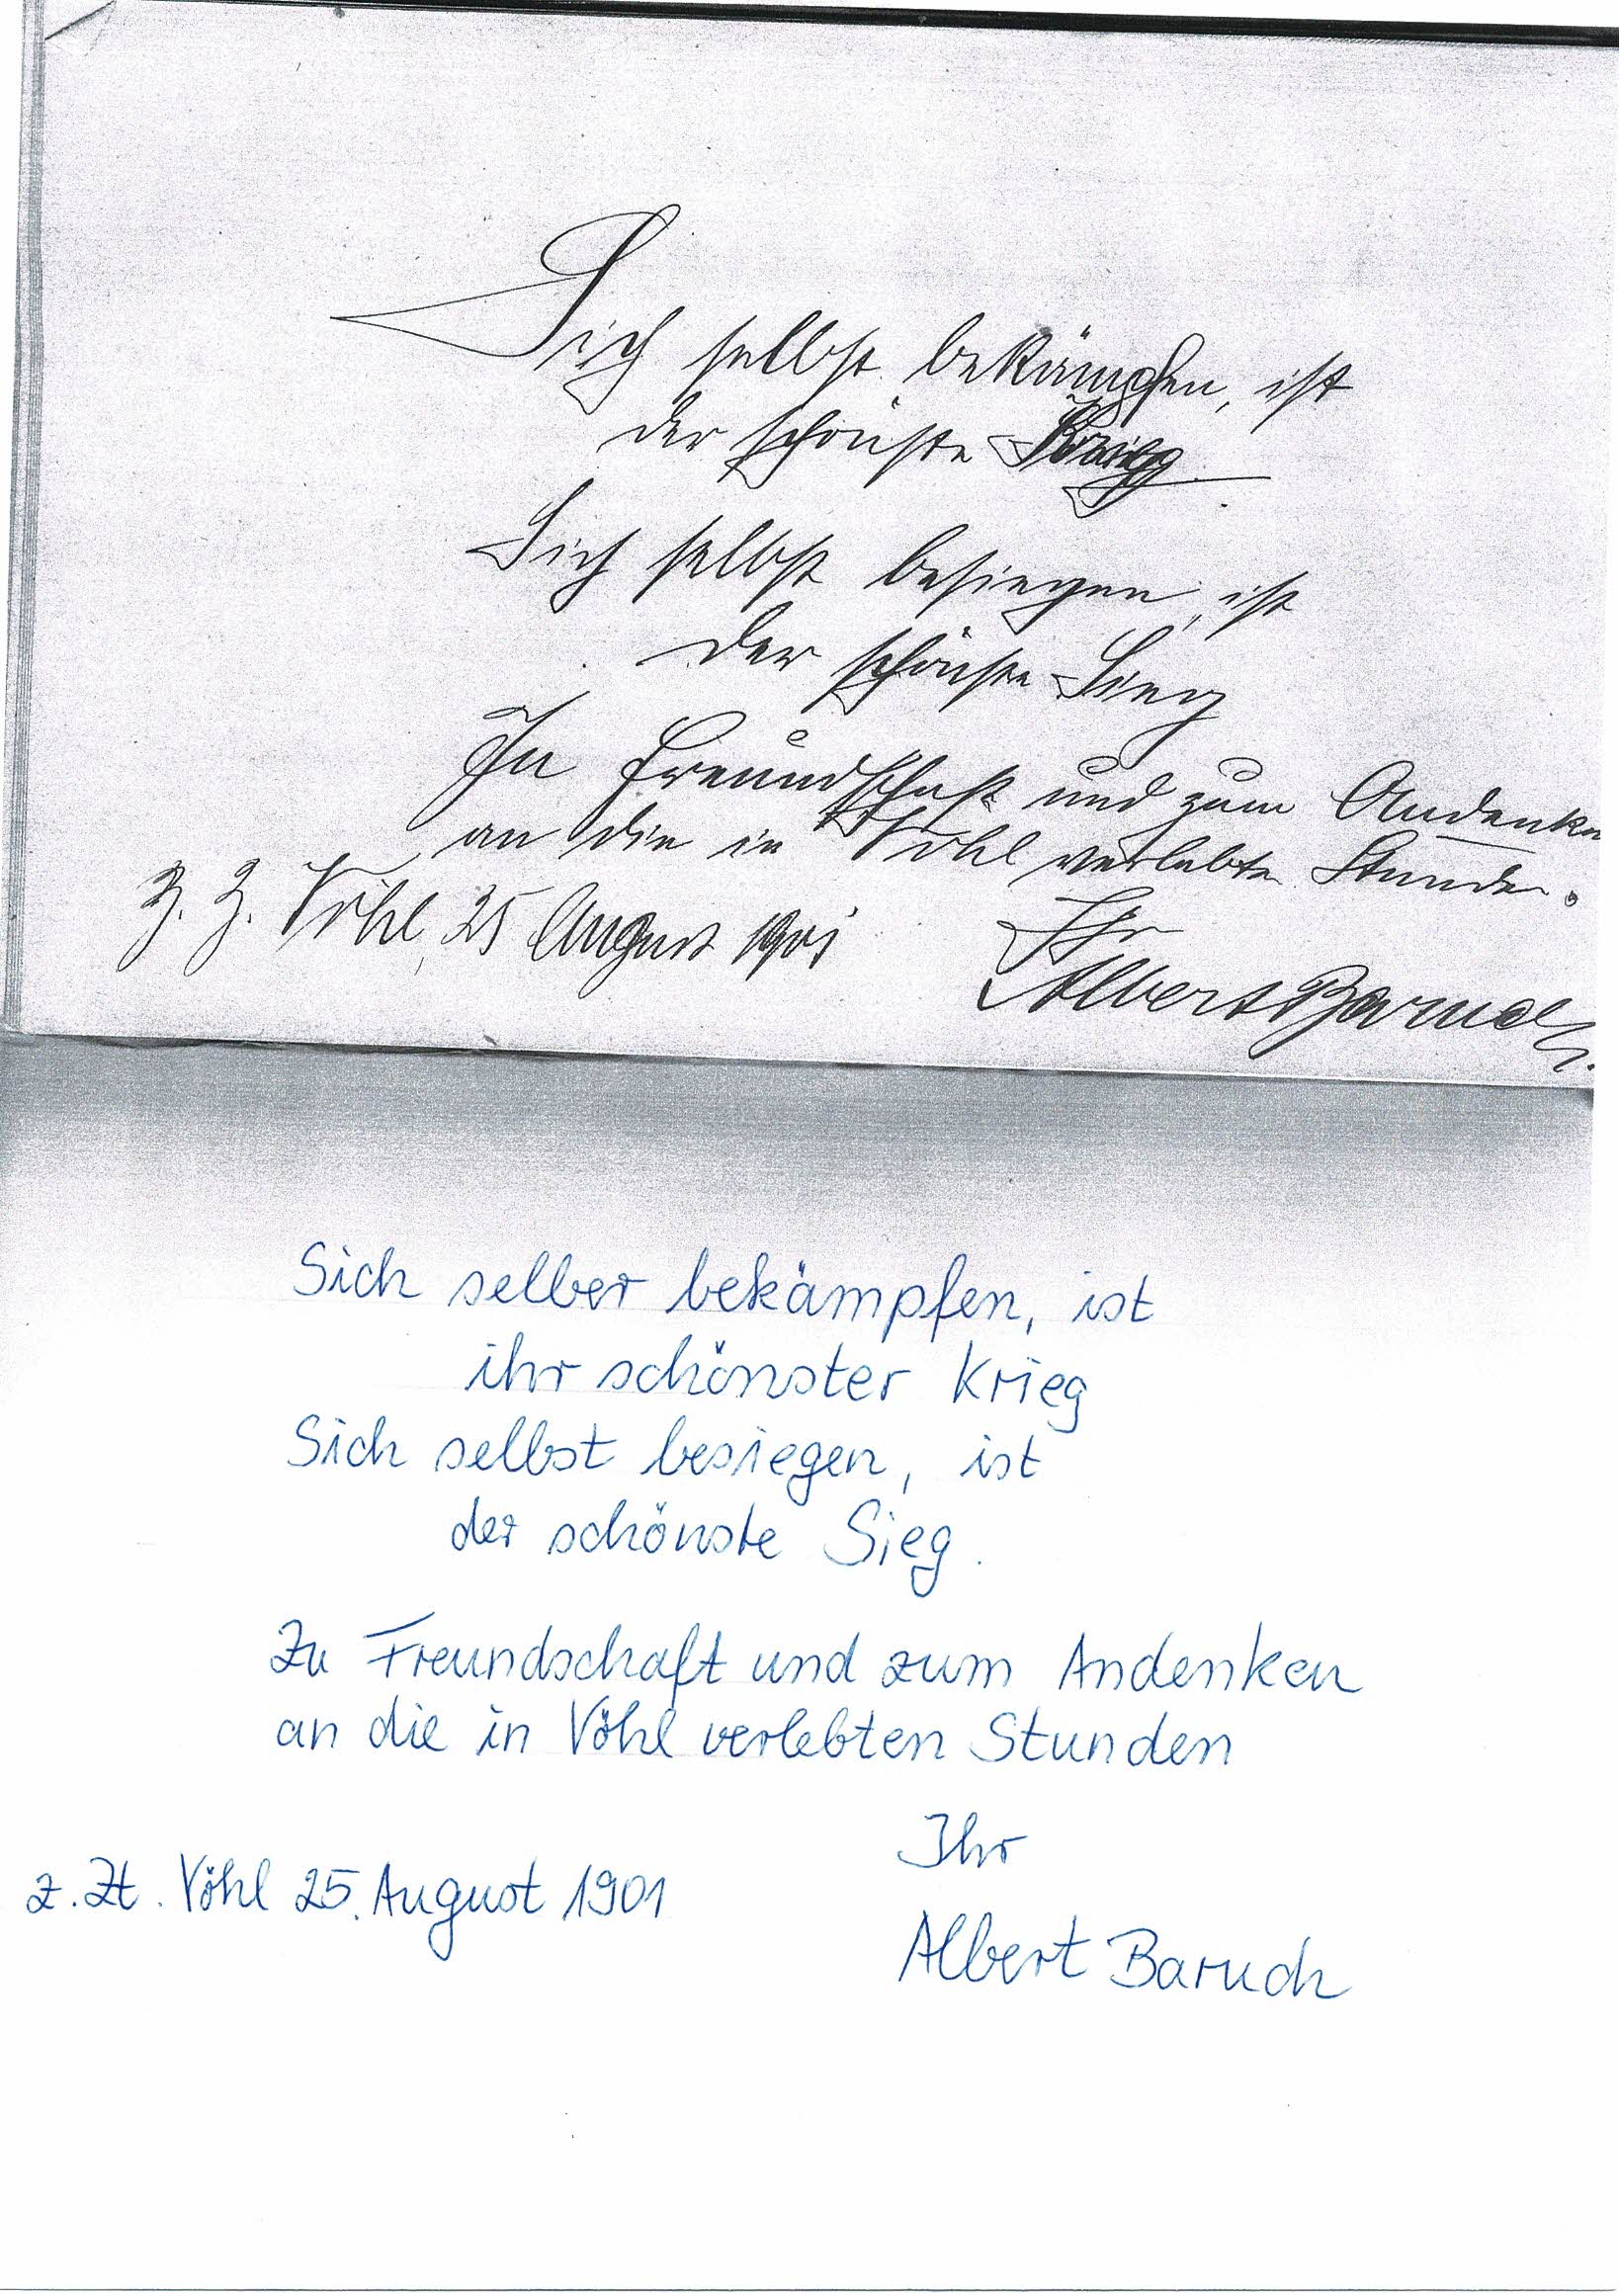 Sich selbst bekämpfen, ist
der schönste Krieg
Sich selbst besiegen, ist
der schönste Sieg
In Freundschaft und zum Andenken
an die in Vöhl verlebten Stunden.
Z. Z. Vöhl, 25 August 1901
Ihr
Albert Baruch.
Sich selber bekämpfen, ist
ihr schönster Krieg
Sich selbst besiegen, ist
der schönste Sieg.
Zu Freundschaft und zum Andenken
an die in Vöhl verlebten Stunden
Ihr
z. Zt. Vöhl 25. August 1901
Albert Baruch